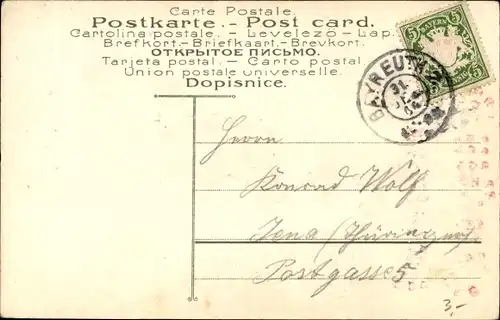 Carte Postale.
Postkarte.- Post card.
Cartolina postale. - Levelező - Lap.
Brefkort.-Briefkaart.-Brevkort.
ОТКРЫТОЕ ПИСЬМО.
Tarjeta postal. - Carto postal
Union postale universelle.
Dopisnice.
BAYERN
5 5
BAYREUTH
31
Herrn
Konrad Wolf
Jena (Thüringen)
Postgasse 5
3,-